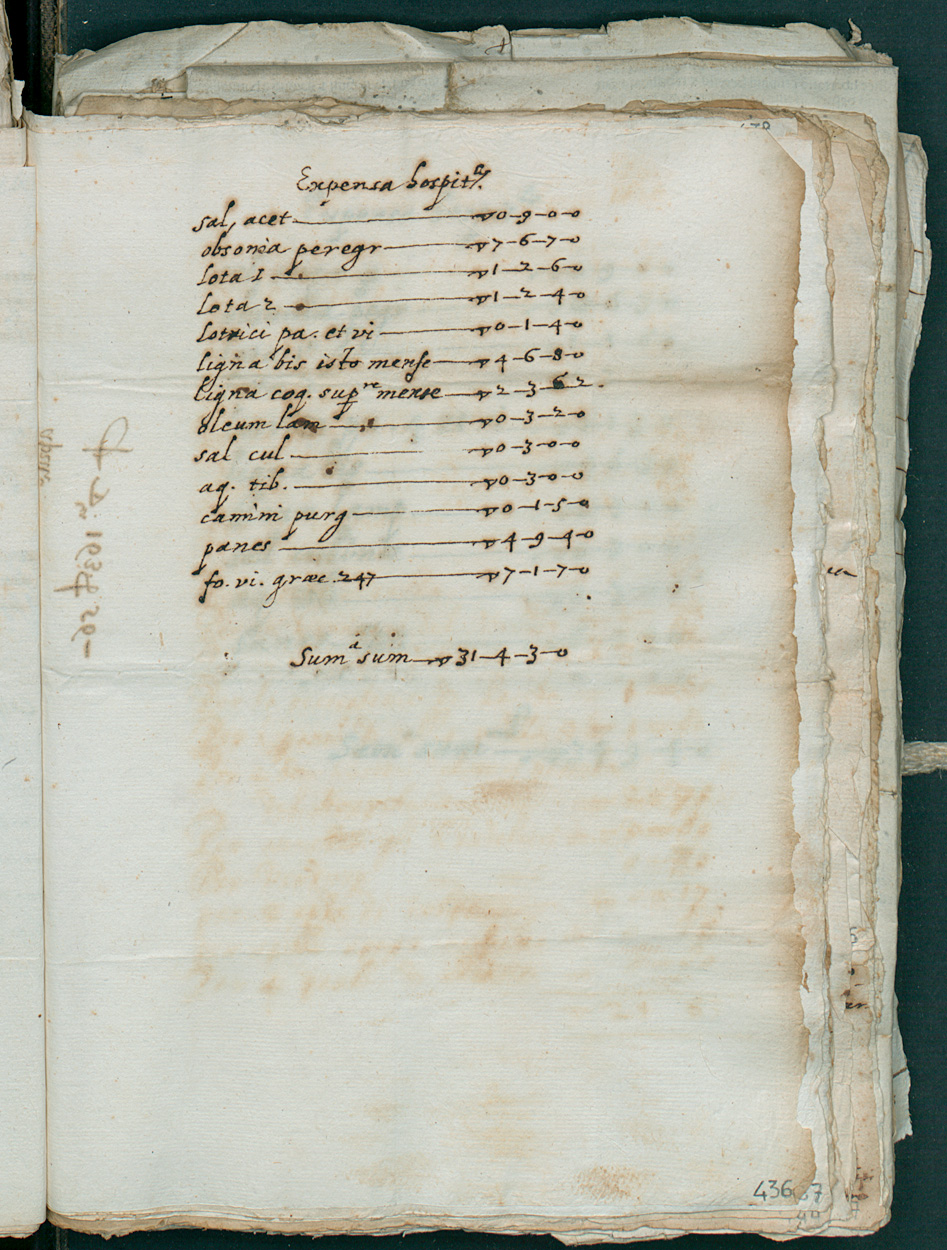 Expensa hospit.
sal, acet ▽0-9-0-0
obsonia peregr ▽7-6-7-0
lota 1 ▽1-2-6-0
lota 2 ▽1-2-4-0
lotrici pa. et vi ▽0-1-4-0
ligna bis isto mense ▽4-6-8-0
ligna coq. supre mense ▽2-3-6-2.
oleum lam ▽0-3-2-0
sal cul ▽0-3-0-0
aq. tib. ▽0-3-0-0
camini purg ▽0-1-5-0
panes ▽4-9-4-0
fo. vi. græc. 247 ▽7-1-7-0
Suma sum ▽31-4-3-0
436